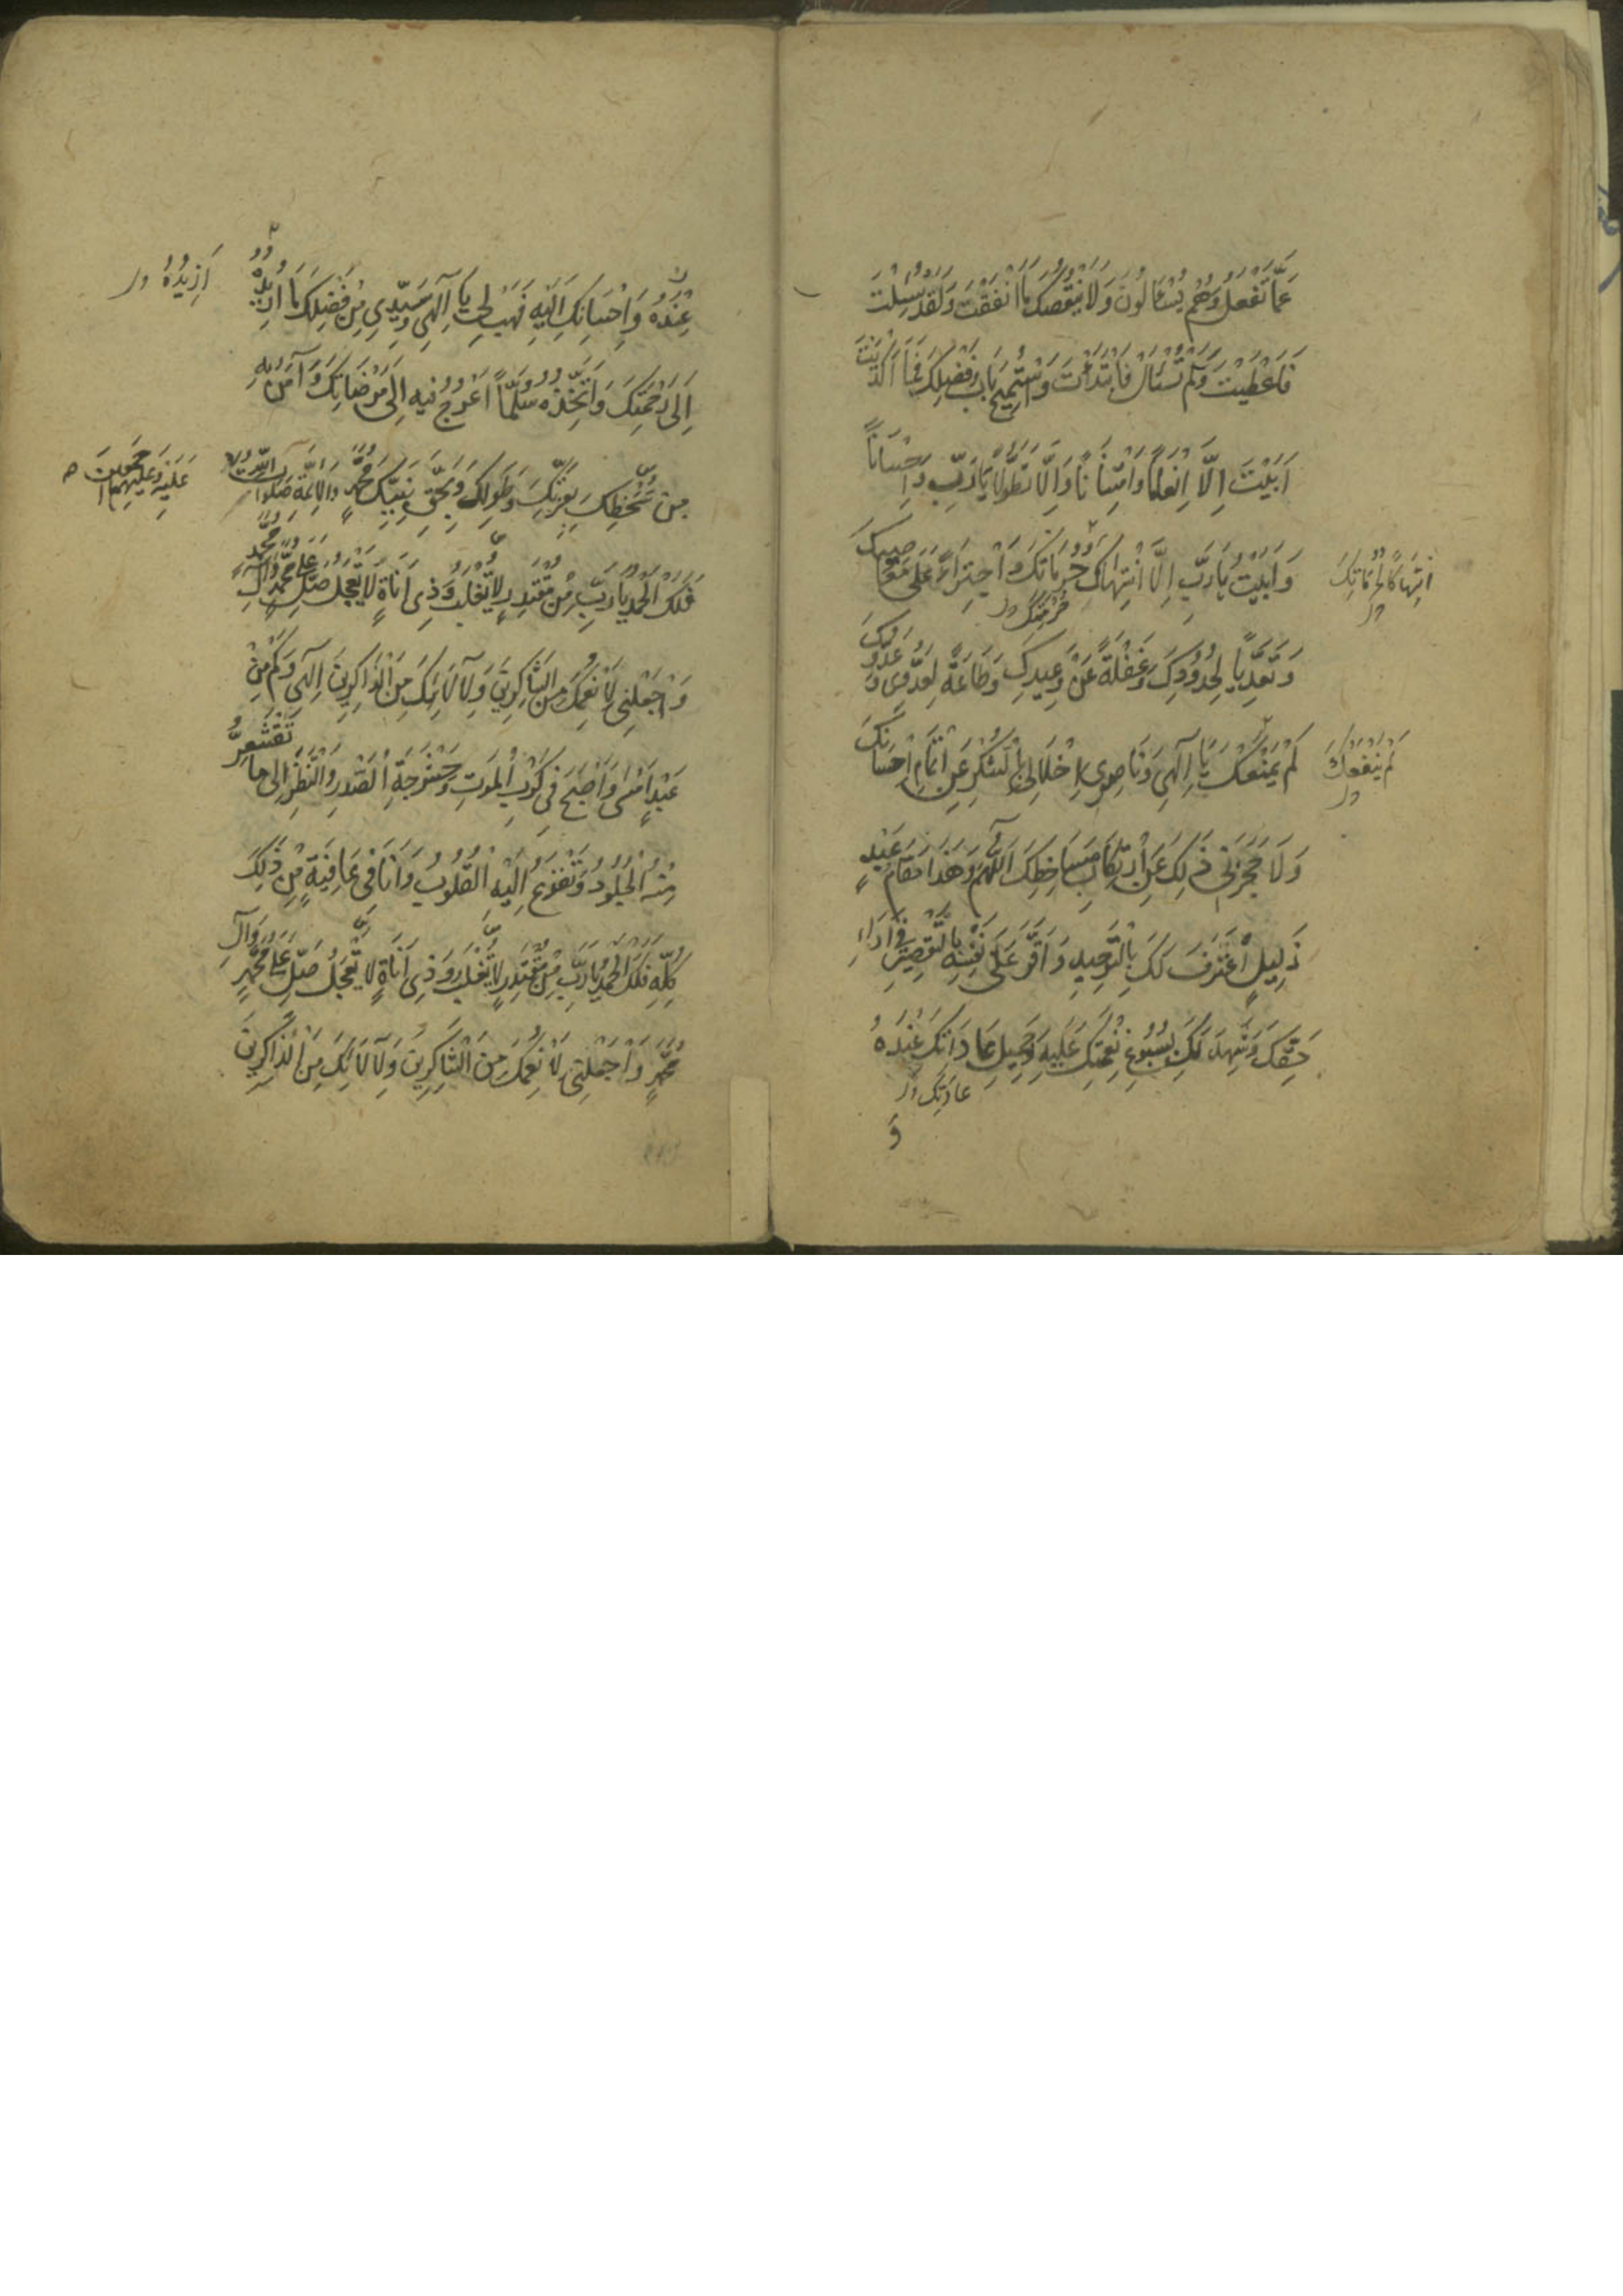 عَمَّا تَفْعَلُ وَهُمْ يُسْئَالُونَ وَلَا يَنْقُصُكَ مَا اَنْفَقْتَ وَلَقَدْ سُئِلْتَ
فَاَعْطَيْتَ وَلَمْ تُسْئَالْ فَابْتَدَأْتَ وَاسْتُمِيحَ بَابُ فَضْلِكَ فَمَا اَكْدَيْتَ
اَبَيْتَ اِلَّا اِنْعَامًا وَامْتِنَانًا وَاِلَّا تَطَوُّلًا يَا رَبِّ وَاِحْسَانًا
وَاَبَيْتُ يَا رَبِّ اِلَّا انْتِهَاكَ حُرُمَاتِكَ وَاجْتِرَاءً عَلَى مَعَاصِيكَ
انْتِهَاكًا لِحُرُمَاتِكَ
حُرْمَتِكَ
وَتَعَدِّيًا لِحُدُودِكَ وَغَفْلَةً عَنْ وَعِيدِكَ وَطَاعَةً لِعَدُوِّي وَعَدُوِّكَ
لَمْ يَمْنَعْكَ يَا اِلَهِي وَنَاصِرِي اِخْلَالِي بِالشُّكْرِ عَنْ اِتْمَامِ اِحْسَانِكَ
لَمْ يَنْفَعْكَ
وَلَا حَجَزَنِي ذَلِكَ عَنِ ارْتِكَابِ مَسَاخِطِكَ اَللَّهُمَّ وَهَذَا مَقَامُ عَبْدٍ
ذَلِيلٍ اعْتَرَفَ لَكَ بِالتَّوْحِيدِ وَاَقَرَّ عَلَى نَفْسِهِ بِالتَّقْصِيرِ فِي اَدَاءِ
حَقِّكَ وَشَهِدَ لَكَ بِسُبُوغِ نِعْمَتِكَ عَلَيْهِ وَجَمِيلِ عَادَاتِكَ عِنْدَهُ
عَادَتِكَ
وَ
عِنْدَهُ وَاِحْسَانِكَ اِلَيْهِ فَهَبْ لِي يَا اِلَهِي وَسَيِّدِي مِنْ فَضْلِكَ مَا اُرِيدُهُ
اَزِيدُهُ
اِلَى رَحْمَتِكَ وَاَتَّخِذُهُ سُلَّمًا اَعْرُجُ فِيهِ اِلَى مَرْضَاتِكَ وَآمَنُ بِهِ
مِنْ سَخَطِكَ بِعِزَّتِكَ وَطَوْلِكَ وَبِحَقِّ نَبِيِّكَ مُحَمَّدٍ وَالْاَئِمَّةِ صَلَوَاتُ اللَّهِ
عَلَيْهِ وَعَلَيْهِمْ اَجْمَعِينَ
فَلَكَ الْحَمْدُ يَا رَبِّ مِنْ مُقْتَدِرٍ لَا يُغْلَبُ وَذِي اَنَاةٍ لَا يَعْجَلُ صَلِّ عَلَى مُحَمَّدٍ وَآلِ مُحَمَّدٍ
وَاجْعَلْنِي لِاَنْعُمِكَ مِنَ الشَّاكِرِينَ وَلِآلَائِكَ مِنَ الذَّاكِرِينَ اِلَهِي وَكَمْ مِنْ
عَبْدٍ اَمْسَى وَاَصْبَحَ فِي كَرْبِ الْمَوْتِ وَحَشْرَجَةِ الصَّدْرِ وَالنَّظَرِ اِلَى مَا تَقْشَعِرُّ
مِنْهُ الْجُلُودُ وَتَفْزَعُ اِلَيْهِ الْقُلُوبُ وَاَنَا فِي عَافِيَةٍ مِنْ ذَلِكَ
كُلِّهِ فَلَكَ الْحَمْدُ يَا رَبِّ مِنْ مُقْتَدِرٍ لَا يُغْلَبُ وَذِي اَنَاةٍ لَا يَعْجَلُ صَلِّ عَلَى مُحَمَّدٍ وَآلِ
مُحَمَّدٍ وَاجْعَلْنِي لِاَنْعُمِكَ مِنَ الشَّاكِرِينَ وَلِآلَائِكَ مِنَ الذَّاكِرِينَ